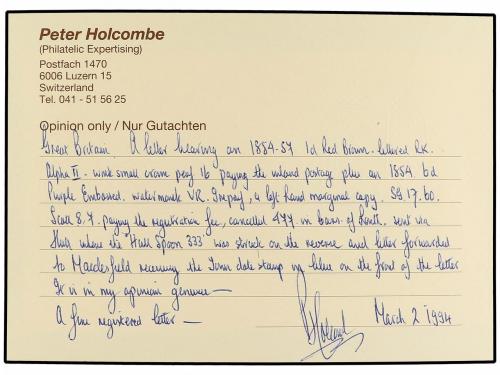 Peter Holcombe
(Philatelic Expertising)
Postfach 1470
6006 Luzern 15
Switzerland
Tel. 041 - 51 56 25
Opinion only / Nur Gutachten
Great Britain. A letter bearing an 1854-57 1d Red Brown. lettered RK.
Alpha II - wmk small crown perf 16 paying the inland postage plus an 1854 6d
Purple Embossed. watermark VR. a left hand marginal copy. SG 17. 60.
Scott 8. 7. paying the registration fee, cancelled 447 in bars. of sent via
Hull where the "Hull Spoon 333" was struck on the reverse and letter forwarded
to receiving the Town date stamp in blue on the front of the letter
It is in my opinion genuine —
A fine registered letter —
March 2 1994